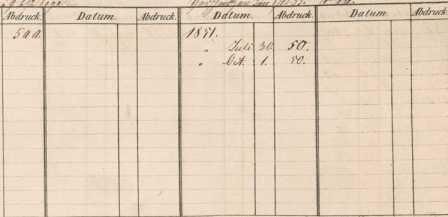 Abdruck. Datum. Abdruck. Datum. Abdruck. Datum. Abdruck.
500. 1851.
" Juli 30. 50.
" Oct. 1. 50.